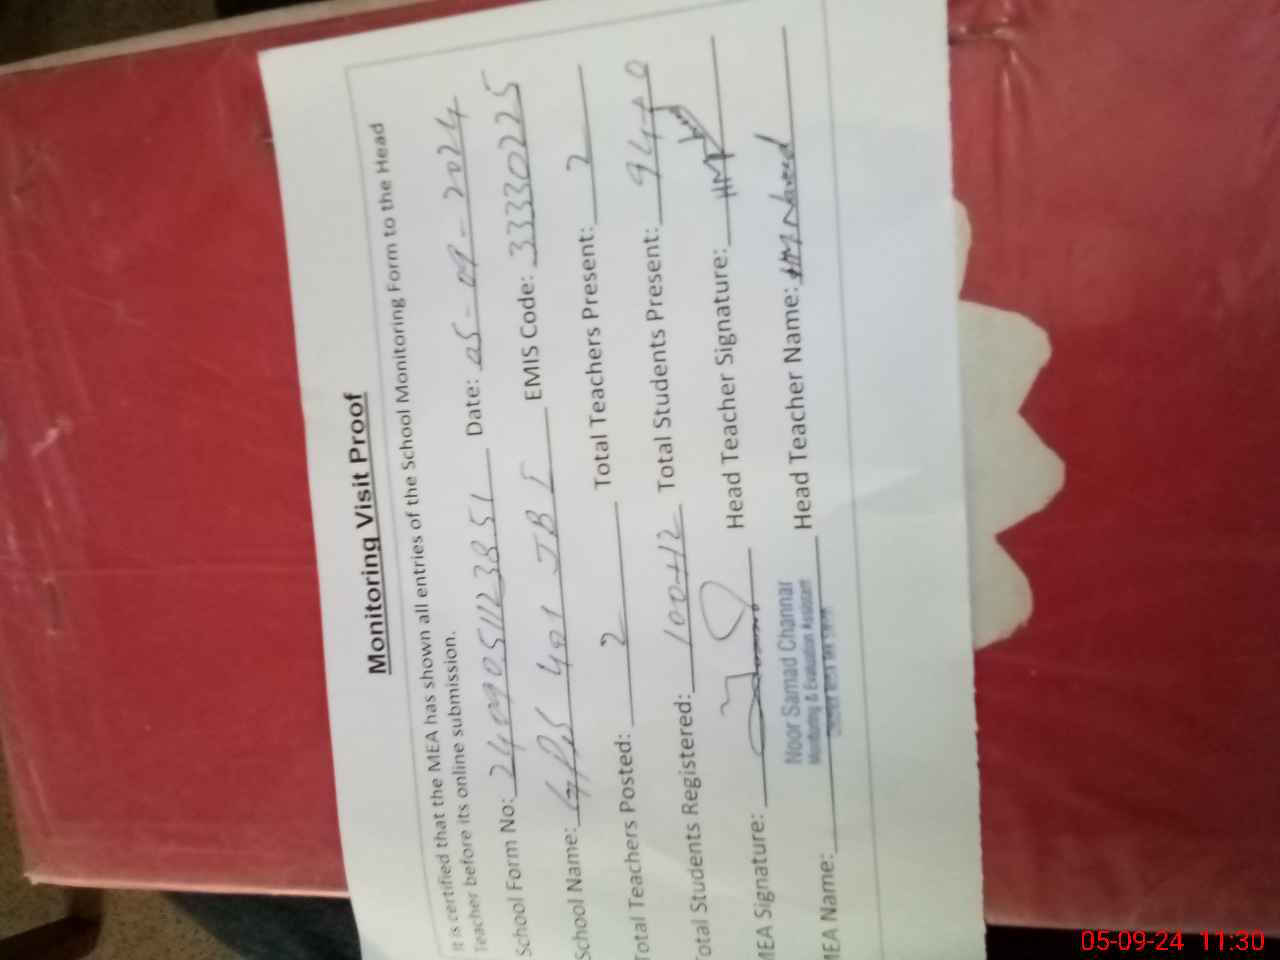 Monitoring Visit Proof
It is certified that the MEA has shown all entries of the School Monitoring Form to the Head
Teacher before its online submission.
School Form No: 2409051123851 Date: 05-09-2024
School Name: GPS 401 JB I EMIS Code: 33330225
Total Teachers Posted: 2 Total Teachers Present: 2
Total Students Registered: 100+12 Total Students Present: 94+0
MEA Signature: Head Teacher Signature: HM
Noor Samad Channar
Monitoring & Evaluation Assistant
MEA Name: Head Teacher Name: HM Naveed
05-09-24 11:30